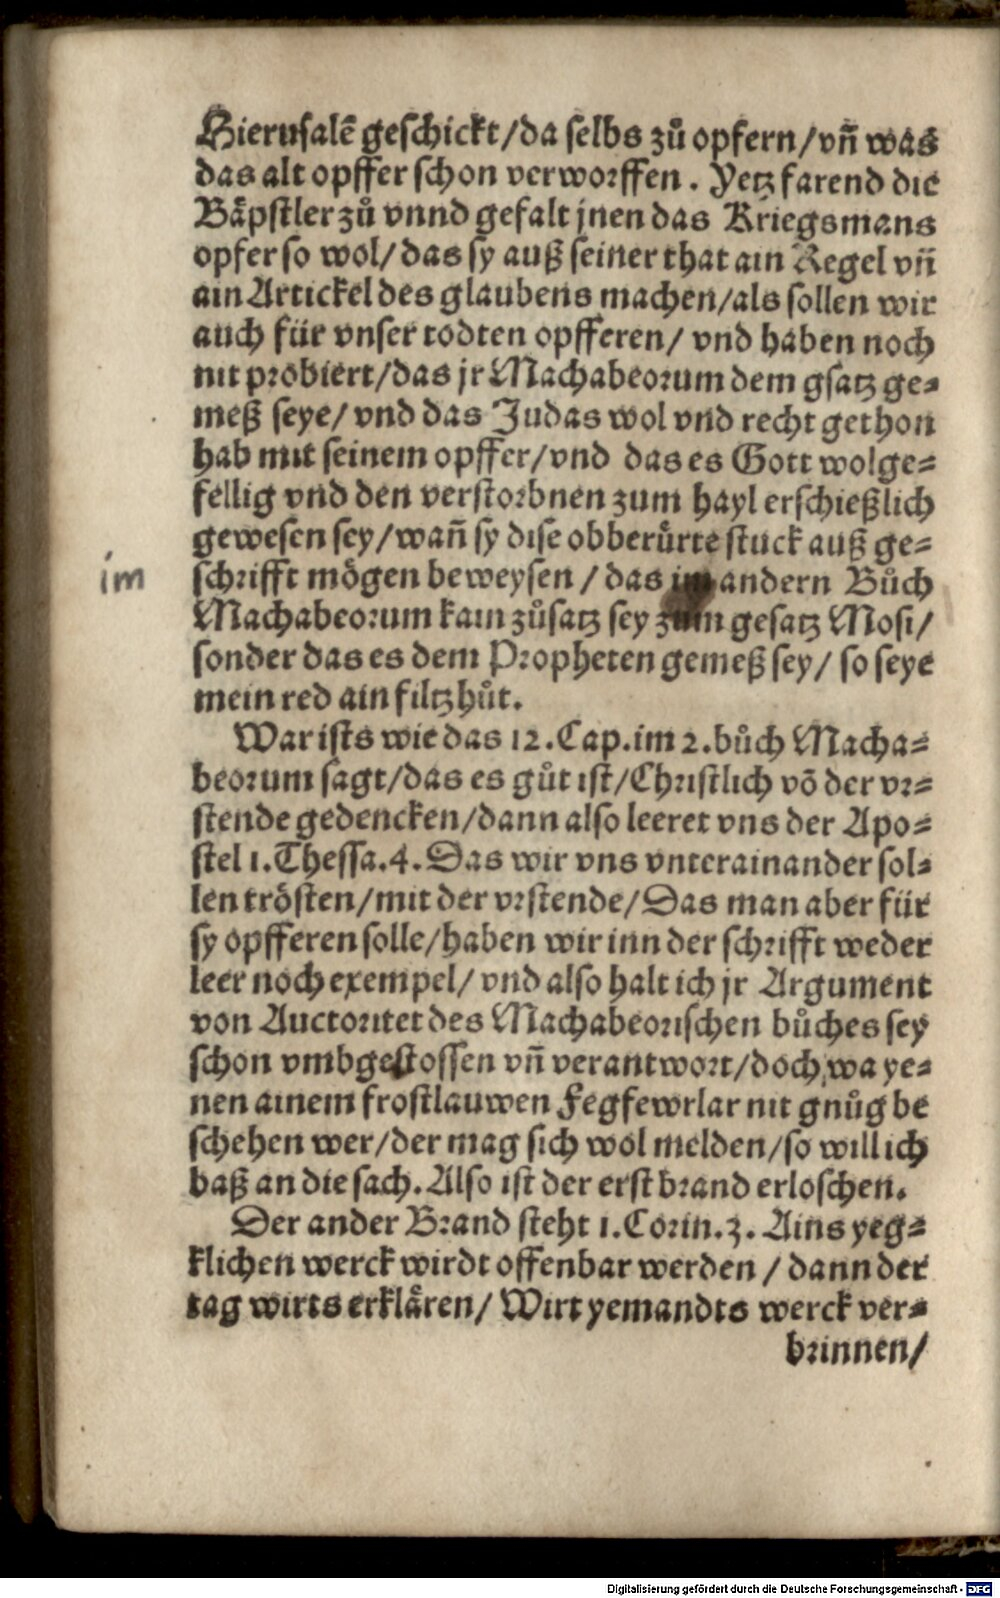 Hierusalē geschickt/da selbs zů opfern/vñ was
das alt opffer schon verworffen. Yetz farend die
Bäpstler zů vnnd gefalt jnen das Kriegsmans
opfer so wol/das sy auß seiner that ain Regel vñ
ain Artickel des glaubens machen/als sollen wir
auch für vnser todten opfferen/ vnd haben noch
nit probiert/das jr Machabeorum dem gsatz ge⸗
meß seye/ vnd das Judas wol vnd recht gethon
hab mit seinem opffer/vnd das es Gott wolge⸗
fellig vnd den verstorbnen zum hayl erschießlich
gewesen sey/wañ sy dise obberůrte stuck auß ge⸗
im
schrifft mögen beweysen / das im andern Bůch
Machabeorum kain zůsatz sey zum gesatz Mosi/
sonder das es dem Propheten gemeß sey/ so seye
mein red ain filtzhůt.
War ists wie das 12.Cap.im 2.bůch Macha⸗
beorum sagt/das es gůt ist/Christlich võ der vr⸗
stende gedencken/dann also leeret vns der Apo⸗
stel 1.Thessa.4. Das wir vns vnterainander sol⸗
len trösten/mit der vrstende/Das man aber für
sy opfferen solle/haben wir inn der schrifft weder
leer noch exempel/ vnd also halt ich jr Argument
von Auctoritet des Machabeorischen bůches sey
schon vmbgestossen vñ verantwort/doch wa ye⸗
nen ainem frostlauwen Fegfewrlar nit gnůg be
schehen wer/der mag sich wol melden/so will ich
baß an die sach. Also ist der erst brand erloschen.
Der ander Brand steht 1.Corin.3. Ains yeg⸗
klichen werck wirdt offenbar werden / dann der
tag wirts erklären/ Wirt yemandts werck ver⸗
brinnen/
Digitalisierung gefördert durch die Deutsche Forschungsgemeinschaft - DFG